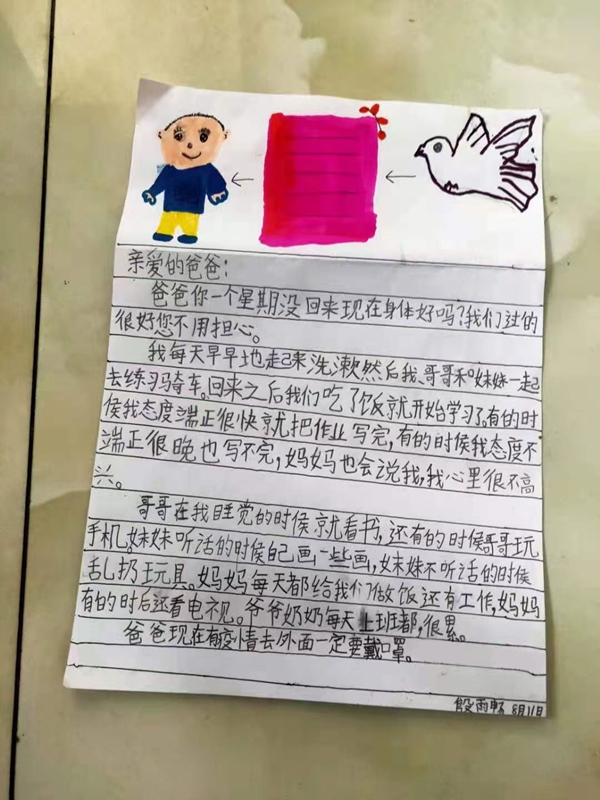 亲爱的爸爸:
爸爸你一个星期没回来现在身体好吗?我们过的
很好您不用担心。
我每天早早地起来洗漱然后我、哥哥和妹妹一起
去练习骑车。回来之后我们吃了饭就开始学习了。有的时
侯我态度端正很快就把作业写完,有的时侯我态度不
端正很晚也写不完,妈妈也会说我,我心里很不高
兴。
哥哥在我睡觉的时侯就看书,还有的时侯哥哥玩
手机。妹妹听话的时侯自己画一些画,妹妹不听话的时侯
乱扔玩具。妈妈每天都给我们做饭还有工作,妈妈
有的时后还看电视。爷爷奶奶每天上班都,很累。
爸爸现在有疫情去外面一定要戴口罩。
殷雨畅 8月11日